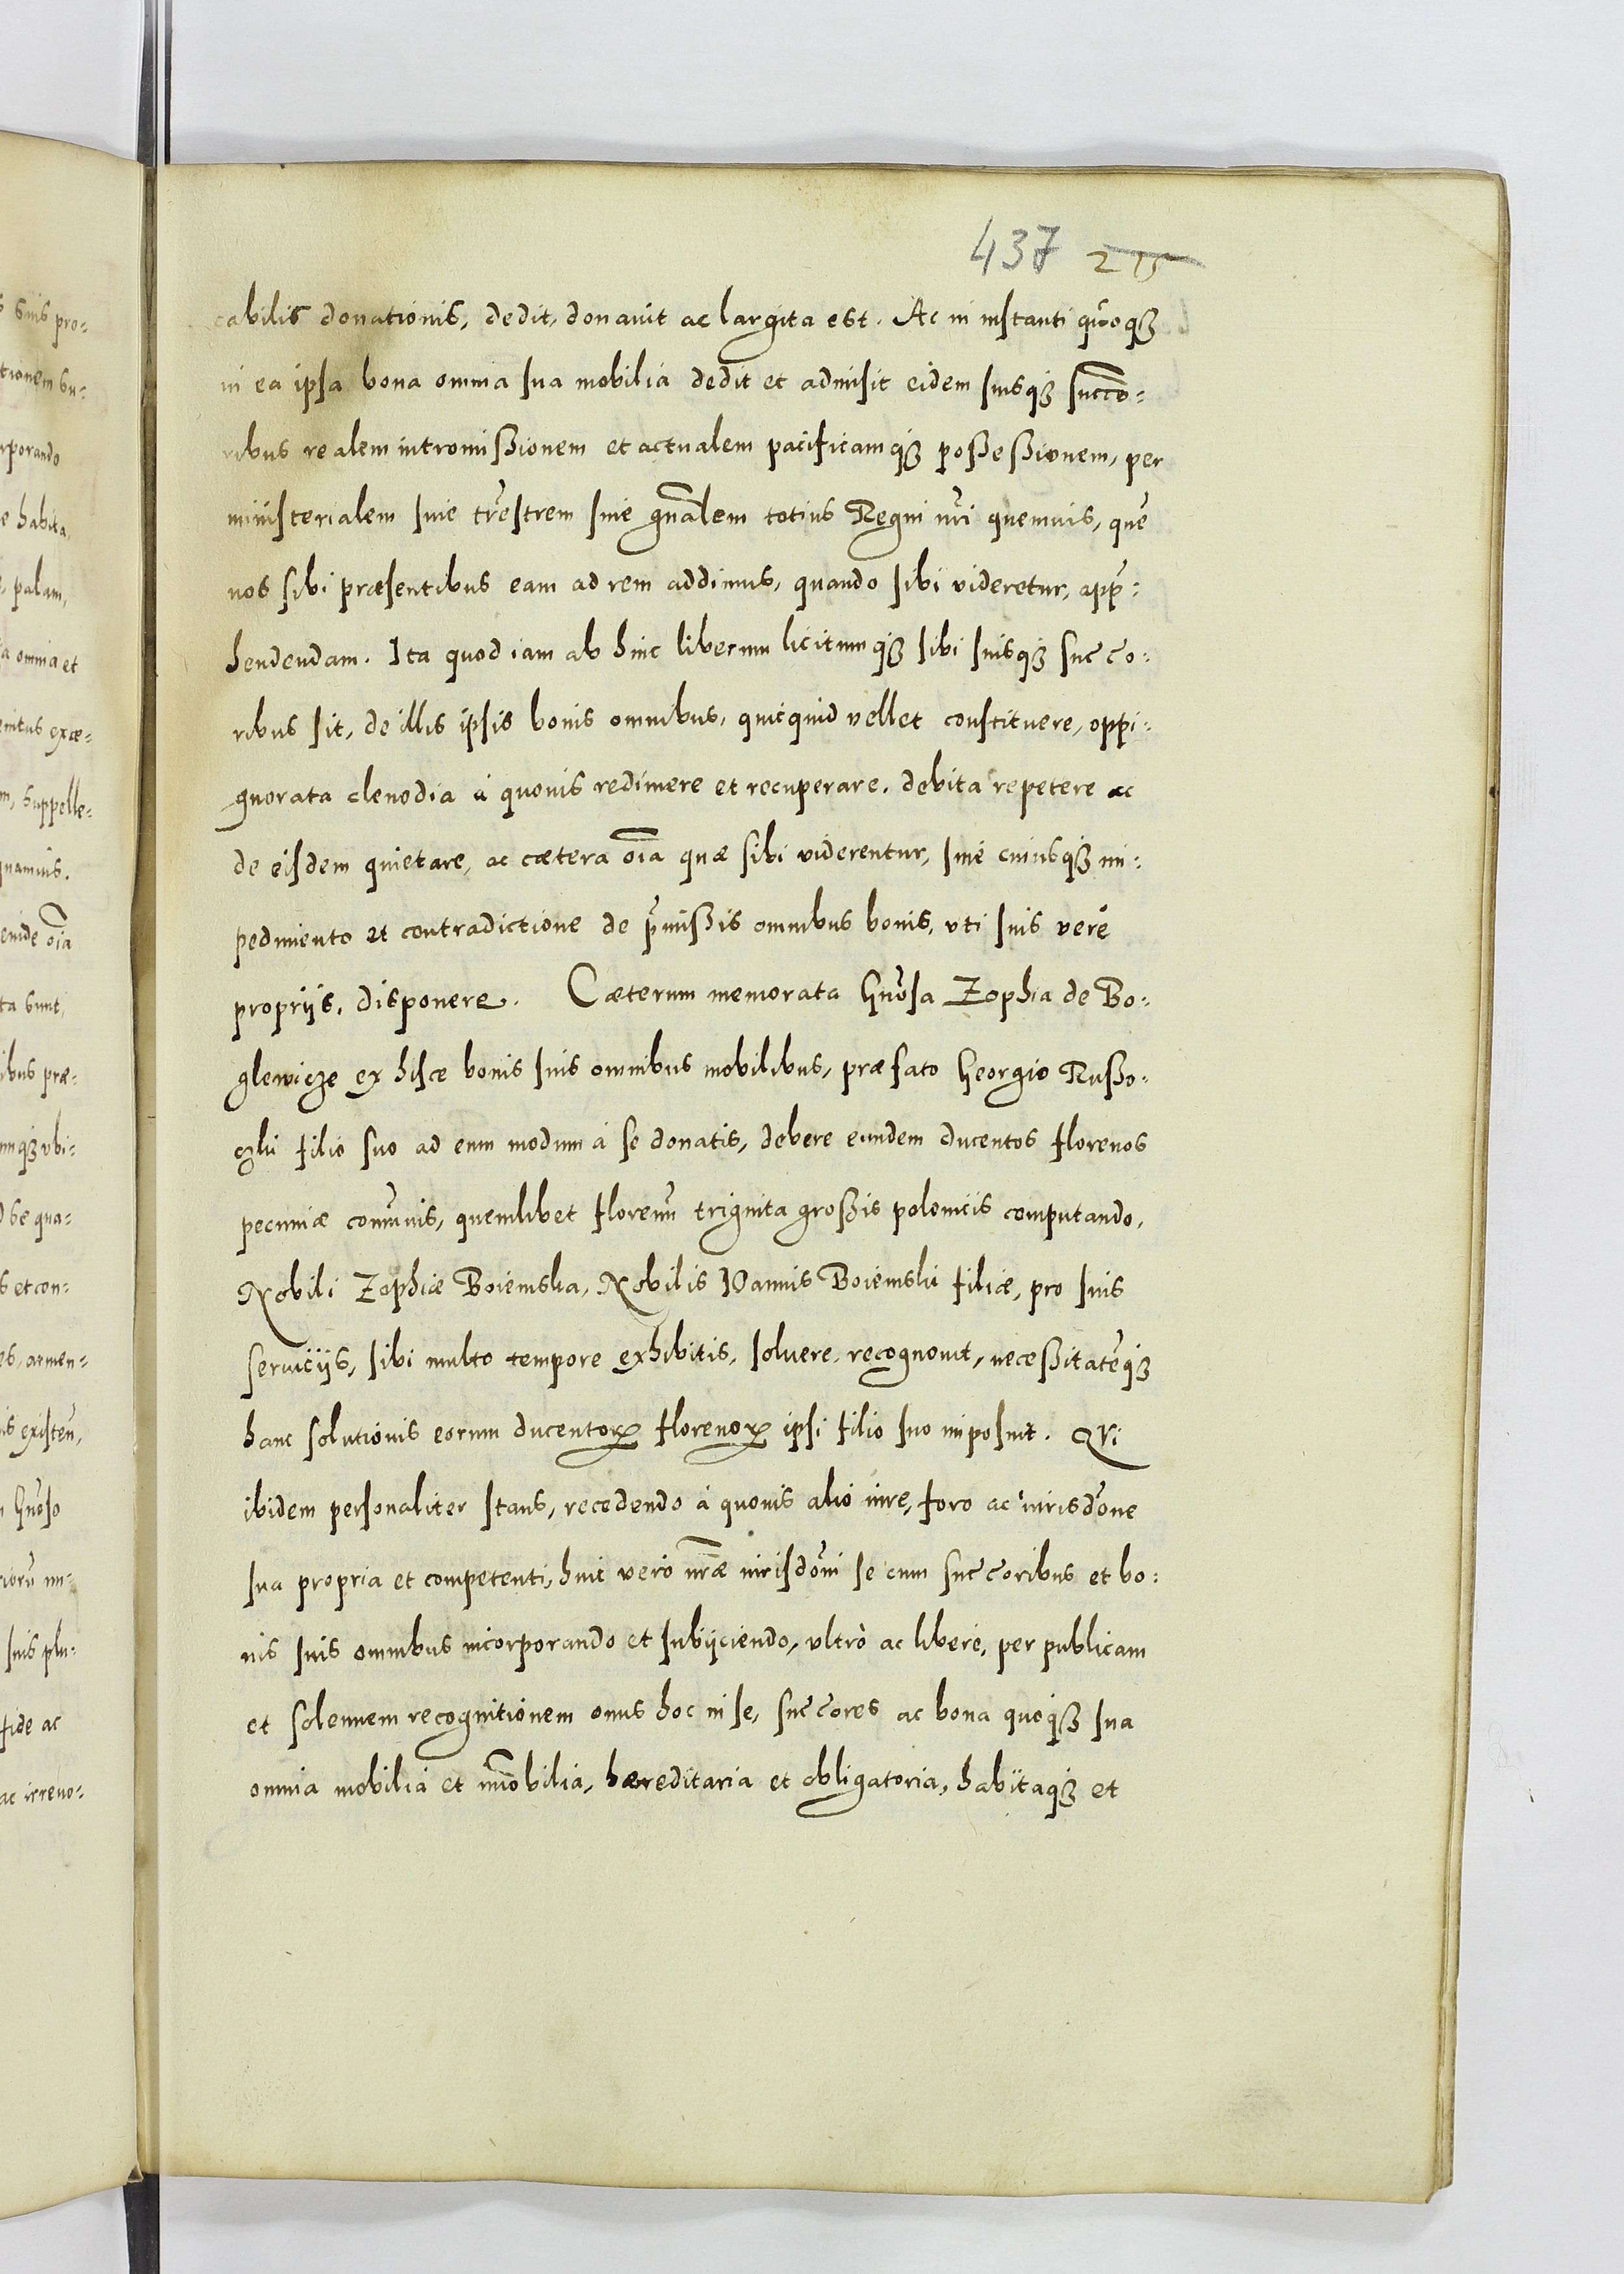 437 215
cabilis donationis, dedit, donauit ac largita est. Ac in instanti quoqȝ
in ea ipsa bona omnia sua mobilia dedit et admisit eidem suisqȝ succo=
ribus realem intromißionem et actualem pacificamqȝ poßeßionem, per
ministerialem siue tr̃estrem siue gñalem totius Regni nr̃i quemuis, quẽ
nos sibi præsentibus eam ad rem addimus, quando sibi videretur, app̃=
hendendam. Ita quod iam ab hinc liberum licitumqȝ sibi suisqȝ succo=
ribus sit, de illis ipsis bonis omnibus, quicquid vellet constituere, oppi=
gnorata clenodia à quouis redimere et recuperare, debita repetere ac
de eisdem quietare, ac cætera oĩa quæ sibi viderentur, sinè cuiusqȝ im=
pedimento et contradictione de p̃mißis omnibus bonis, vti suis verè
propriis, disponere. Cæterum memorata Gñosa Zophia de Bo=
glewicze ex hisce bonis suis omnibus mobilibus, præfato Georgio Rußo=
czki filio suo ad eum modum à se donatis, debere eundem ducentos florenos
pecuniæ com̃unis, quemlibet florenũ triginta großis polonicis computando,
Nobili Zophiæ Boiemska, Nobilis Ioannis Boiemski filiæ, pro suis
seruiciis, sibi multo tempore exhibitis, soluere, recognouit, neceßitatẽqȝ
hanc solutionis eorum ducentoꝝ florenoꝝ ipsi filio suo imposuit. Qui
ibidem personaliter stans, recedendo à quouis alio iure, foro ac iurisdõne
sua propria et competenti, huic verò nr̃æ iurisdõni se cum succoribus et bo=
nis suis omnibus incorporando et subijciendo, vltrò ac liberè, per publicam
et solennem recognitionem onus hoc in se, succores ac bona quoqȝ sua
omnia mobilia et im̃obilia, hæreditaria et obligatoria, habitaqȝ et